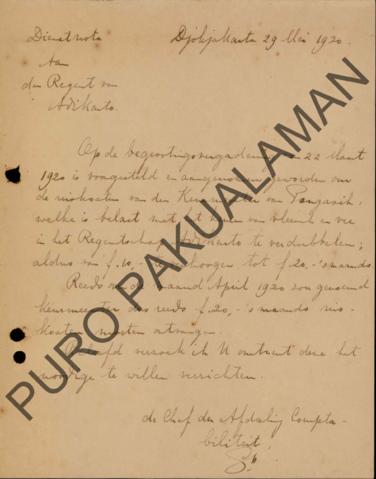 Dienstnota
Djokjakarta 29 Mei 1920.
Aan
den Regent van
Adikarto.
Op de begrootingsvergadering van 22 Maart
1920 is voorgesteld en aangenomen geworden om
de reiskosten van den Keurmeester van Pengasih,
welke is belast met het keuren van vleesch en vee
in het Regentschap Adikarto te verdubbelen;
aldus van f. 10,- te verhoogen tot f 20,- 's maands.
Reeds in de maand April 1920 zou genoemd
keurmeester dus reeds f 20,- 's maands reis-
kosten moeten ontvangen.
verzoek ik U omtrent deze het
noodige te willen verrichten.
de Chef der Afdeling Compta-
biliteit,
PURO PAKUALAMAN